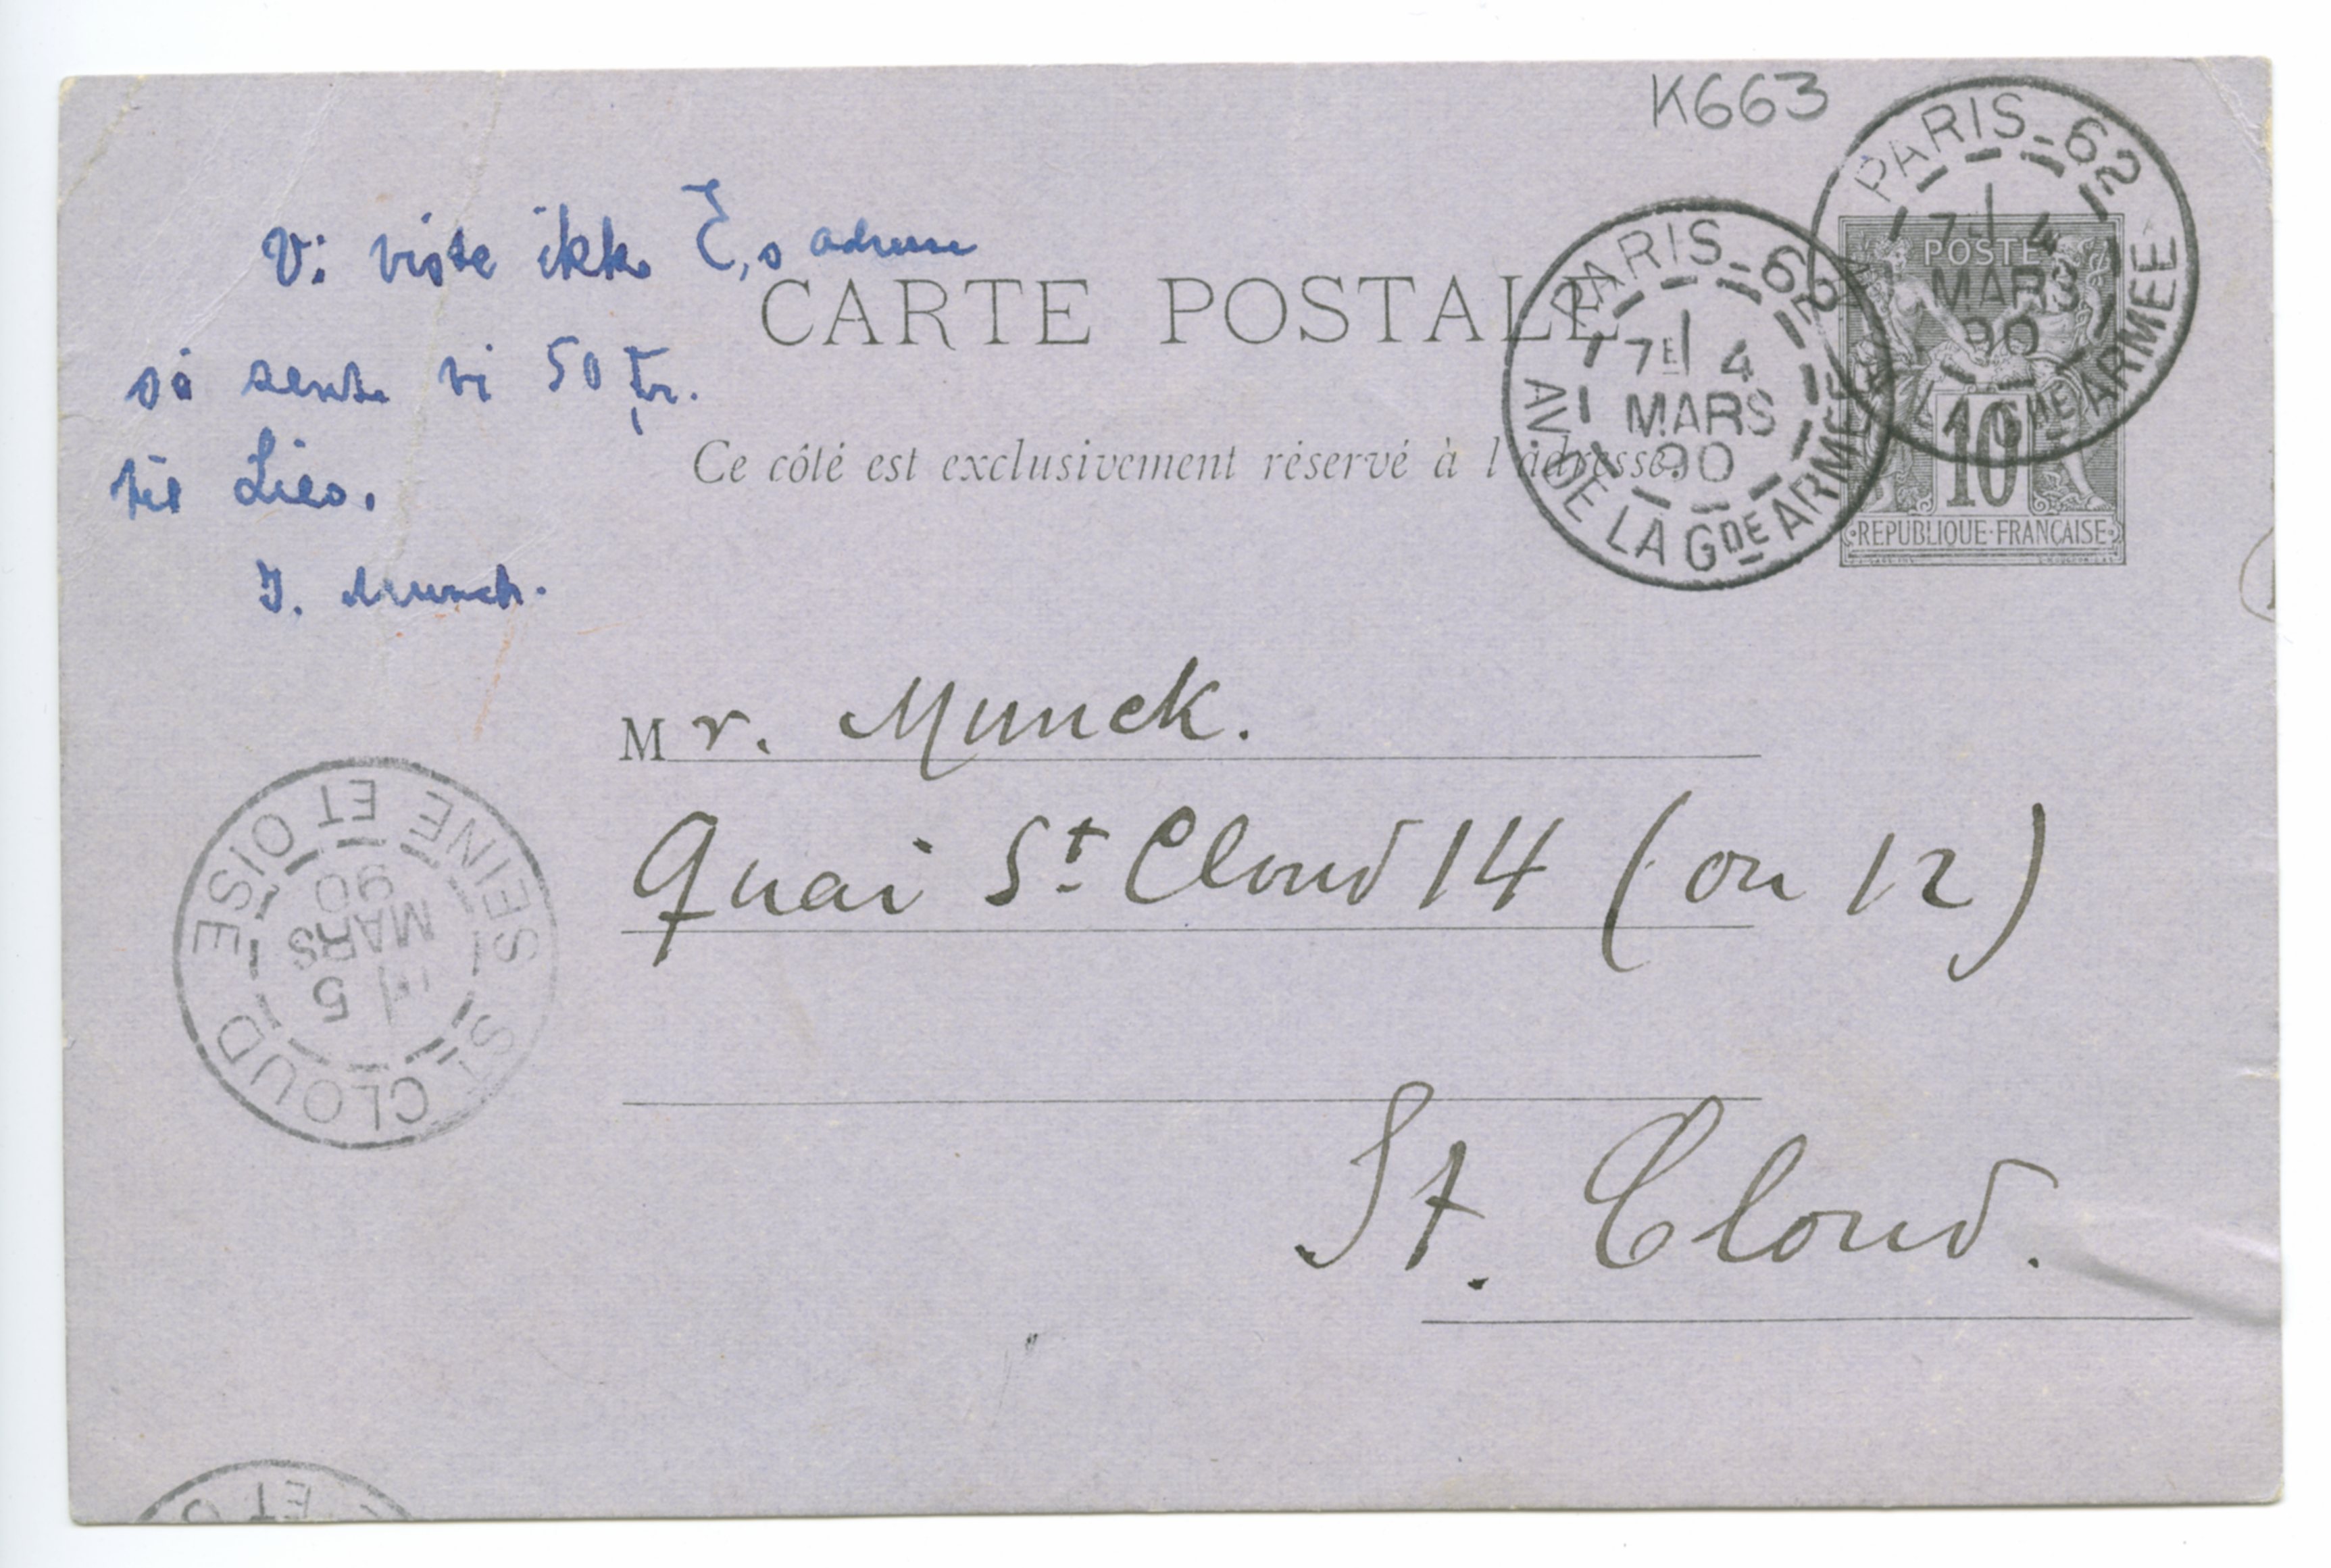 K663
PARIS-62
7E 4
MARS
90
AV. DE LA GDE ARMEE
PARIS-62
7E 4
MARS
90
LA GDE ARMEE
POSTES
10
REPUBLIQUE FRANÇAISE
Vi viste ikke E,s adresse
så sendte vi 50 fr.
til Lies.
I. Munch.
CARTE POSTALE
Ce côté est exclusivement réservé à l'adresse.
Mr. Munck.
Quai St Cloud 14 (ou 12)
St. Cloud.
ST CLOUD
5
MARS
90
SEINE ET OISE
ET O